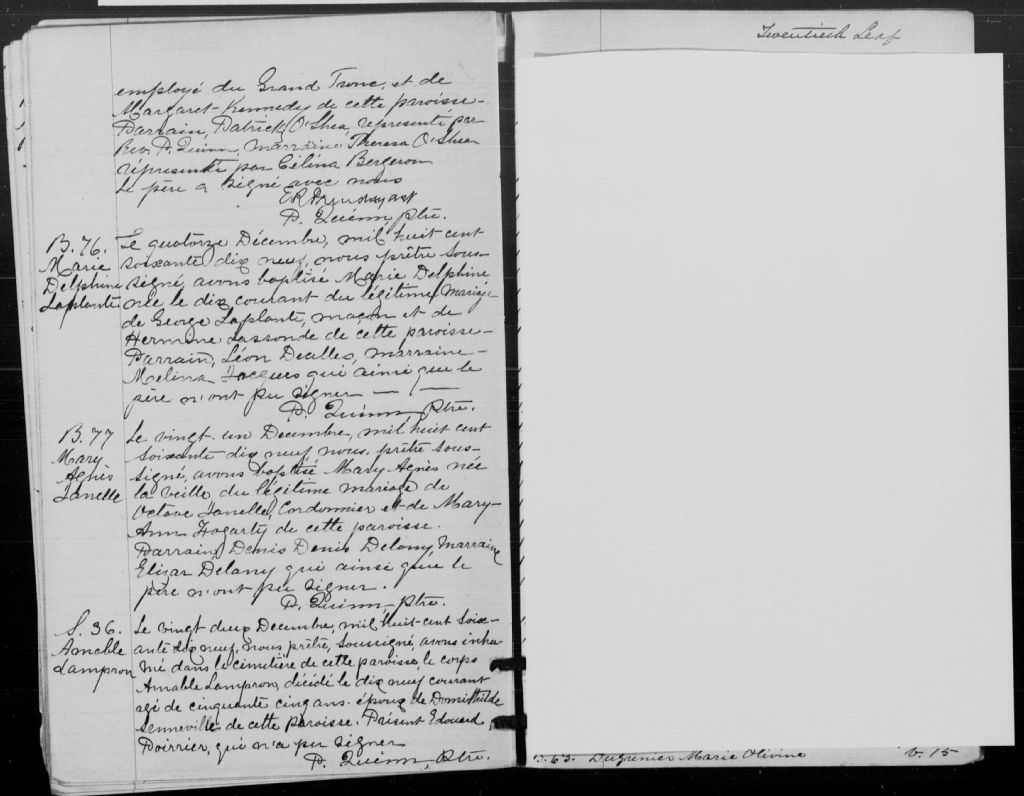 Twentieth Leaf
employé du Grand Tronc, et de
Margaret Kennedy de cette paroisse-
Parrain, Patrick O'Shea, représenté par
Rev. P. Quinn, marraine Theresa O'Shea
représenté par Célina Bergeron
Le père a signé avec nous
P. Quinn, ptre.
B. 76.
Marie
Delphine
Laplante
Le quatorze Décembre, mil huit cent
soixante dix neuf, nous prêtre sous-
signé, avons baptisé Marie Delphine
née le dix courant du légitime mariage
de George Laplante, maçon et de
Hermine Lassonde de cette paroisse-
Parrain, Léon Dealles, marraine-
Melina Jacques qui ainsi que le
père n'ont pu signer — —
P. Quinn, Ptre.
B. 77
Mary
Agnès
Janelle
Le vingt-un Decembre, mil huit cent
soixante dix neuf nous, prêtre sous-
signé, avons baptisé Mary Agnès née
la veille du légitime mariage de
Octave Janelle, Cordonnier et de Mary-
Ann Fogarty de cette paroisse.
Parrain, Denis Denis Delany, Marraine
Elizar Delany qui ainsi que le
père n'ont pu signer.
P. Quinn, Ptre.
S. 36.
Amable
Lampron
Le vingt deux Decembre, mil huit-cent soix-
ante dix neuf, nous prêtre, soussigné, avons inhu-
mé dans le cimetière de cette paroisse, le corps
Amable Lampron, décidé le dix neuf courant
agé de cinquante cinq ans. époux de Domithilde
Senneville de cette paroisse. Présent Edouard
Poirrier, qui n'a pu signer
P. Quinn, Ptre.
B. 63. Dugrenier Marie Olivine b. 15